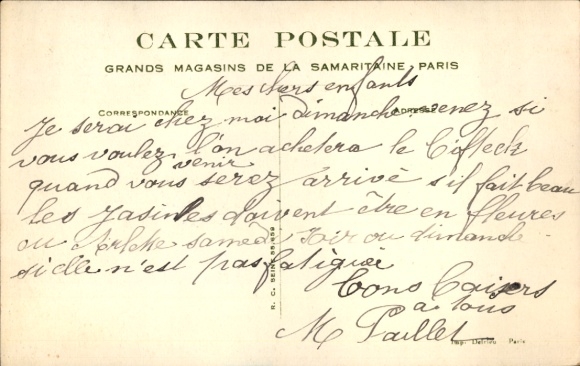 CARTE POSTALE
GRANDS MAGASINS DE LA SAMARITAINE, PARIS
Mes chers enfants
CORRESPONDANCE
ADRESSE
Je serai chez moi dimanche venez si
vous voulez l'on achetera le bifteck
venir
quand vous serez arrivé s'il fait beau
les doivent être en fleures
ou samedi soir ou dimande
si elle n'est pas fatiguée
bons baisers
à tous
M Paillet
R. C. SEINE 55.458
Imp. Delrieu Paris